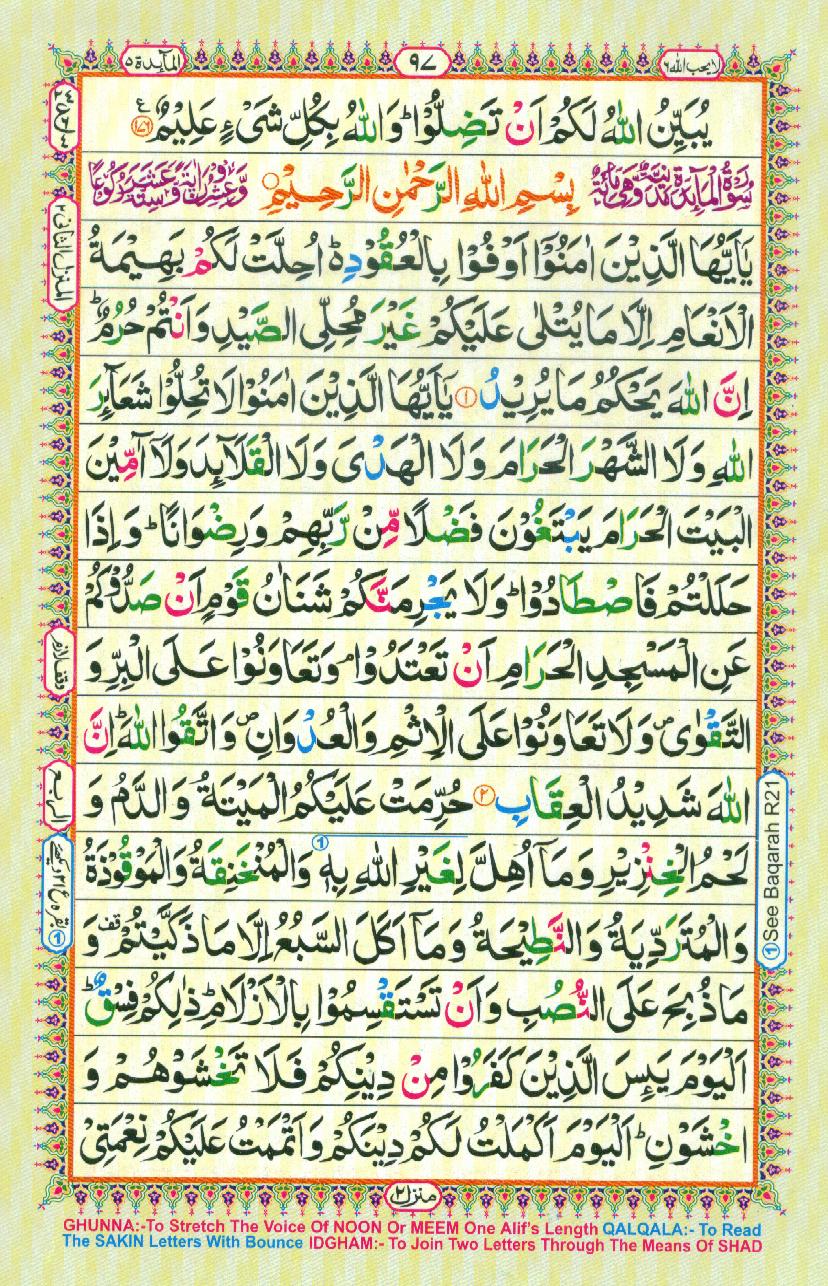 لا يحب الله ٦
٩٧
المآئدة ٥
يُبَيِّنُ اللّٰهُ لَكُمْ اَنْ تَضِلُّوْا ؕ وَاللّٰهُ بِكُلِّ شَیْءٍ عَلِيْمٌ ﴿۱۷۶﴾ ع
سُوْرَةُ الْمَآئِدَةِ مَدَنِيَّةٌ وَّهِیَ مِائَةٌ
بِسْمِ اللّٰهِ الرَّحْمٰنِ الرَّحِيْمِ
وَّعِشْرُوْنَ اٰيَةً وَّسِتَّةَ عَشَرَ رُكُوْعًا
يٰۤاَيُّهَا الَّذِيْنَ اٰمَنُوْۤا اَوْفُوْا بِالْعُقُوْدِ ؕ اُحِلَّتْ لَكُمْ بَهِيْمَةُ
الْاَنْعَامِ اِلَّا مَا يُتْلٰى عَلَيْكُمْ غَيْرَ مُحِلِّی الصَّيْدِ وَاَنْتُمْ حُرُمٌ ؕ
اِنَّ اللّٰهَ يَحْكُمُ مَا يُرِيْدُ ﴿۱﴾ يٰۤاَيُّهَا الَّذِيْنَ اٰمَنُوْا لَا تُحِلُّوْا شَعَآئِرَ
اللّٰهِ وَلَا الشَّهْرَ الْحَرَامَ وَلَا الْهَدْیَ وَلَا الْقَلَآئِدَ وَلَاۤ آٰمِّيْنَ
الْبَيْتَ الْحَرَامَ يَبْتَغُوْنَ فَضْلًا مِّنْ رَّبِّهِمْ وَرِضْوَانًا ؕ وَاِذَا
حَلَلْتُمْ فَاصْطَادُوْا ؕ وَلَا يَجْرِمَنَّكُمْ شَنَاٰنُ قَوْمٍ اَنْ صَدُّوْكُمْ
عَنِ الْمَسْجِدِ الْحَرَامِ اَنْ تَعْتَدُوْا ۘ وَتَعَاوَنُوْا عَلَى الْبِرِّ وَ
التَّقْوٰى ۪ وَلَا تَعَاوَنُوْا عَلَى الْاِثْمِ وَالْعُدْوَانِ ۪ وَاتَّقُوا اللّٰهَ ؕ اِنَّ
اللّٰهَ شَدِيْدُ الْعِقَابِ ﴿۲﴾ حُرِّمَتْ عَلَيْكُمُ الْمَيْتَةُ وَالدَّمُ وَ
لَحْمُ الْخِنْزِيْرِ وَمَاۤ اُهِلَّ لِغَيْرِ اللّٰهِ بِهٖ ① وَالْمُنْخَنِقَةُ وَالْمَوْقُوْذَةُ
وَالْمُتَرَدِّيَةُ وَالنَّطِيْحَةُ وَمَاۤ اَكَلَ السَّبُعُ اِلَّا مَا ذَكَّيْتُمْ قف وَ
مَا ذُبِحَ عَلَى النُّصُبِ وَاَنْ تَسْتَقْسِمُوْا بِالْاَزْلَامِ ؕ ذٰلِكُمْ فِسْقٌ ؕ
اَلْيَوْمَ يَئِسَ الَّذِيْنَ كَفَرُوْا مِنْ دِيْنِكُمْ فَلَا تَخْشَوْهُمْ وَ
اخْشَوْنِ ؕ اَلْيَوْمَ اَكْمَلْتُ لَكُمْ دِيْنَكُمْ وَاَتْمَمْتُ عَلَيْكُمْ نِعْمَتِیْ
المنزل الثانی ۲
وقف لازم
الربع
① See Baqarah R21
منزل ۲
GHUNNA:-To Stretch The Voice Of NOON Or MEEM One Alif's Length QALQALA:- To Read
The SAKIN Letters With Bounce IDGHAM:- To Join Two Letters Through The Means Of SHAD